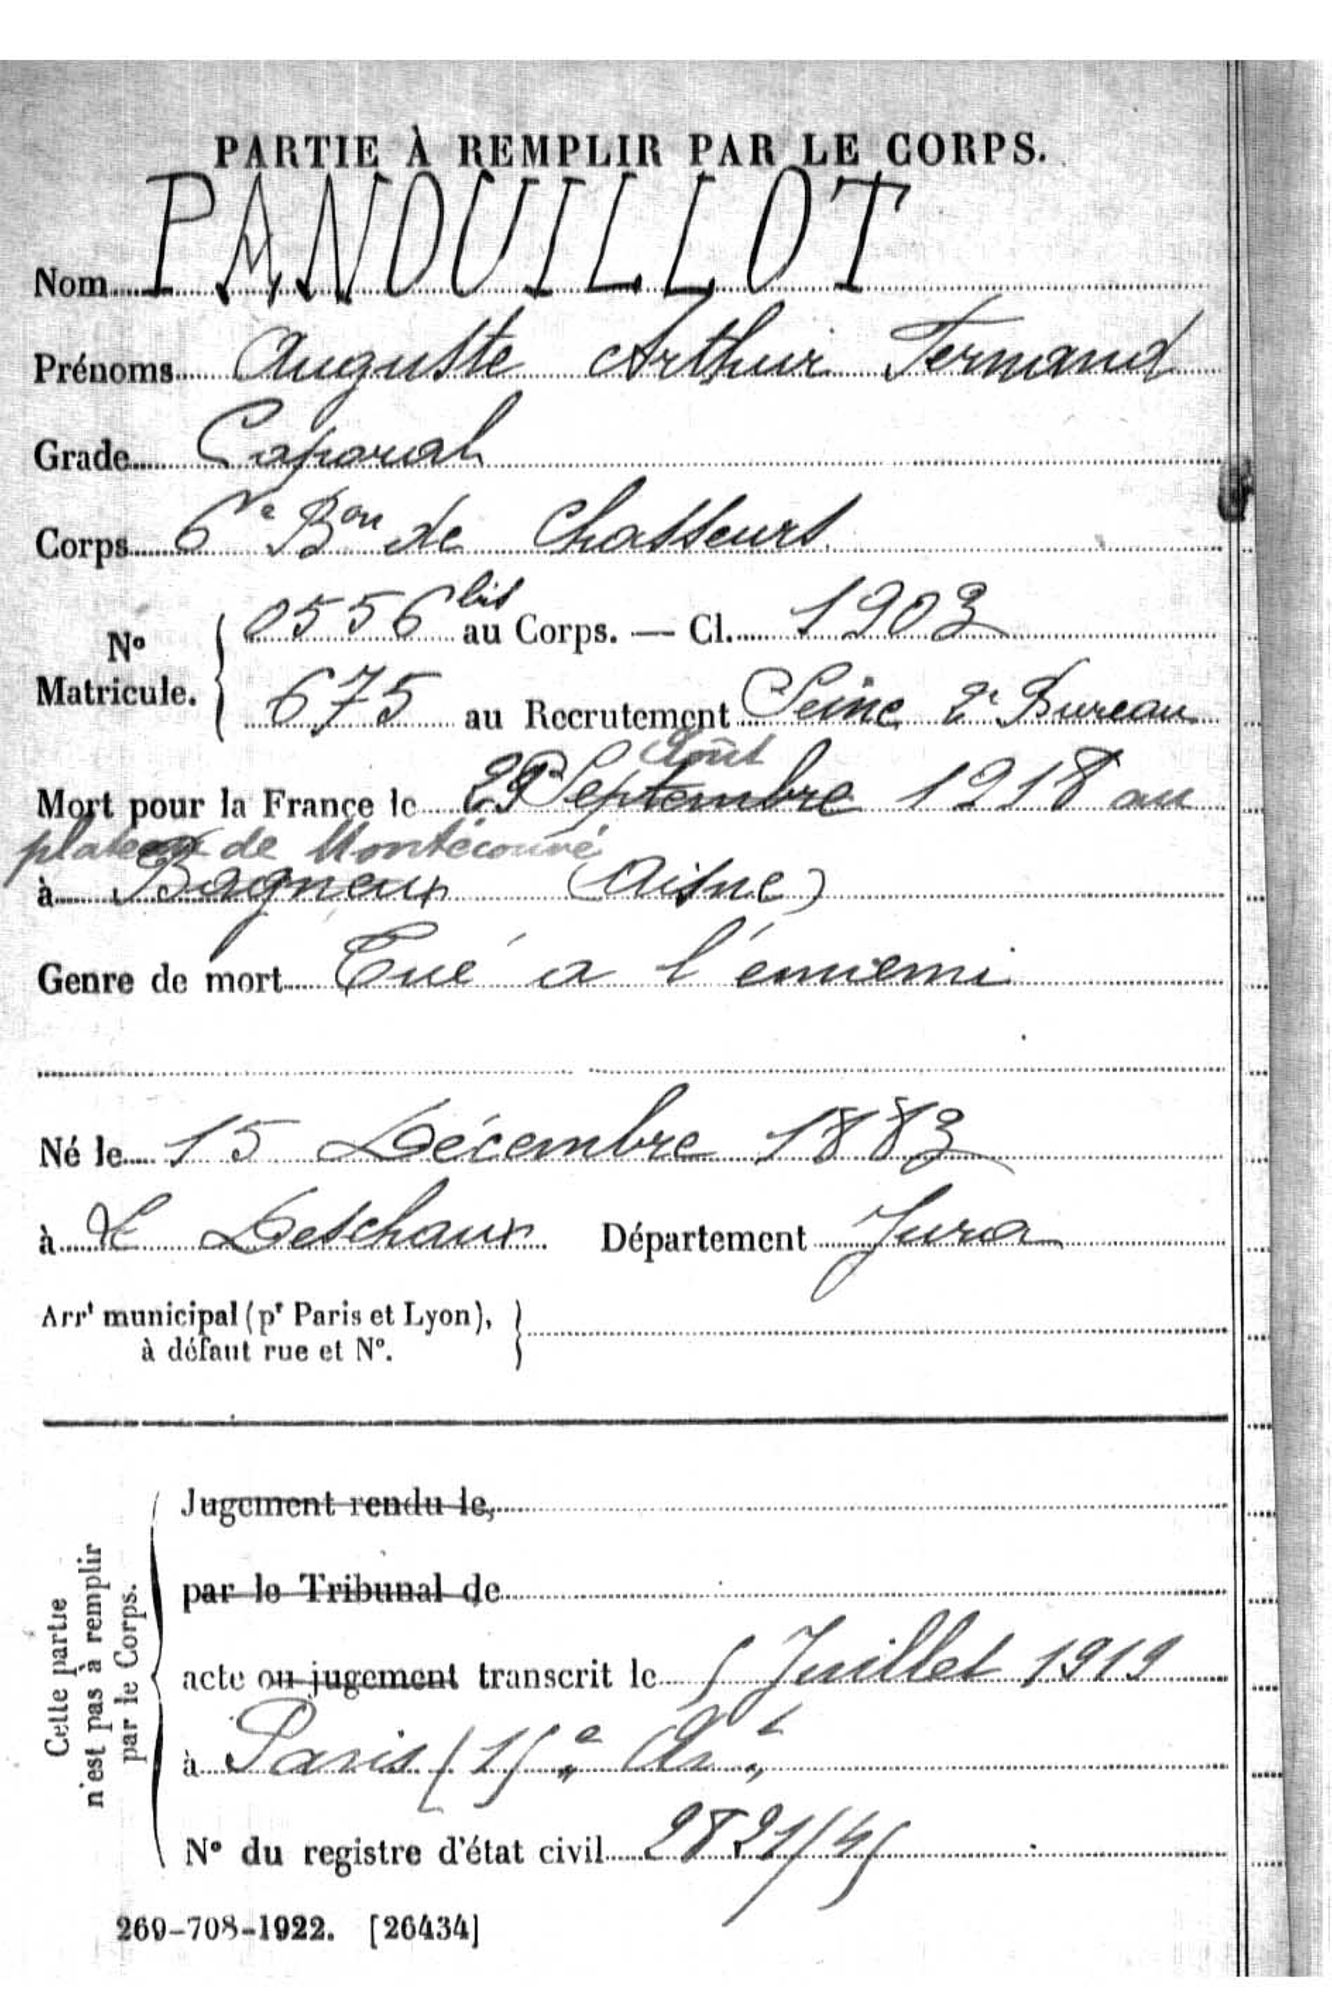 PARTIE À REMPLIR PAR LE CORPS.
Nom PANOUILLOT
Prénoms Auguste Arthur Fernand
Grade Caporal
Corps 6e Bon de Chasseurs
No Matricule. 0556 bis au Corps. — Cl. 1903
675 au Recrutement Seine 2e Bureau
Août
Mort pour la France le 29 Septembre 1918 au
plateau de Montécouvé
à Bagneux (Aisne)
Genre de mort Tué a l'énnemi
Né le 15 Décembre 1883
à Le Deschaux Département Jura
Arrt municipal (pr Paris et Lyon),
à défaut rue et No.
Cette partie
n'est pas à remplir
par le Corps.
Jugement rendu le,
par le Tribunal de
acte ou jugement transcrit le 5 Juillet 1919
à Paris (15e Art
No du registre d'état civil 2821/45
269-708-1922. [26434]